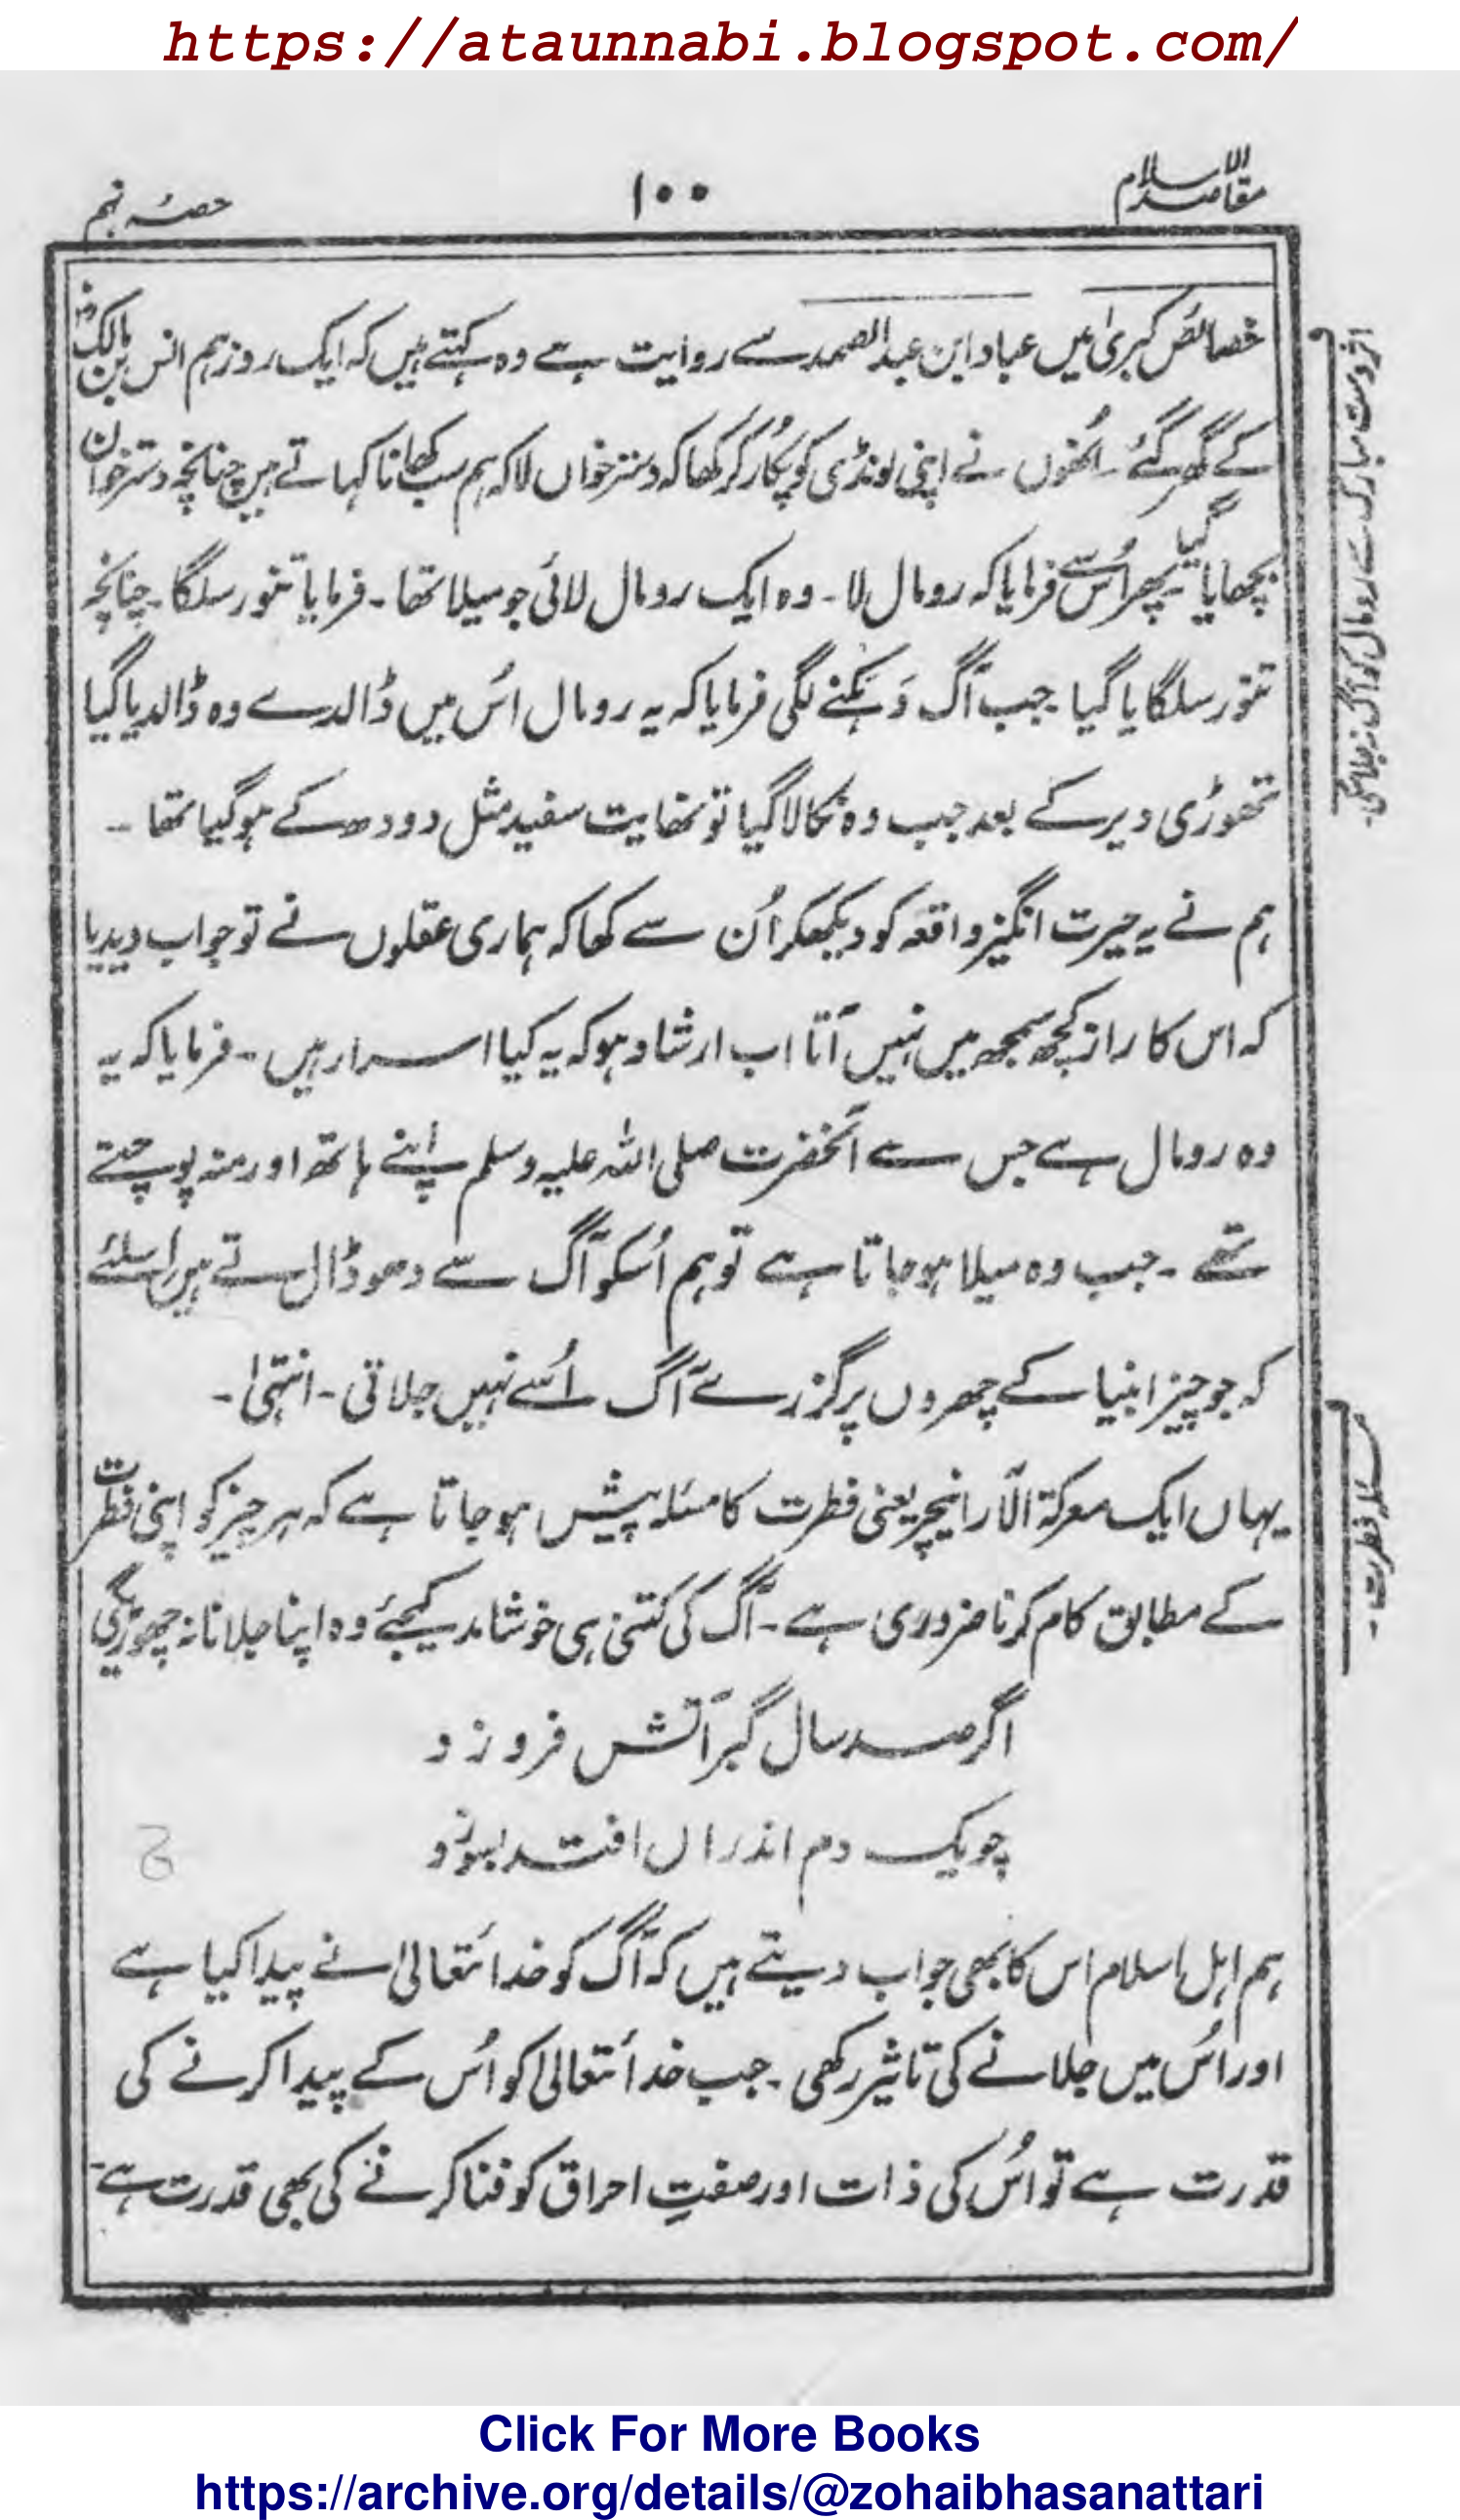 https://ataunnabi.blogspot.com/
مقاصد الاسلام ۱۰۰ حصۂ نہم
خصائص کبریٰ میں عباد ابن عبد الصمد سے روایت ہے وہ کہتے ہیں کہ ایک روز ہم انس بن مالک رض
کے گھر گئے ۔ اُنھوں نے اپنی لونڈی کو پکار کر کھا کہ دستر خواں لا کہ ہم سب کھانا کہاتے ہیں چنانچہ دستر خوان
بچھایا گیا ۔ پھر اُس سے فرمایا کہ رومال لا ۔ وہ ایک رومال لائی جو میلا تھا ۔ فرمایا تنور سلگا ۔ چنانچہ
تنور سلگایا گیا جب آگ دَہکنے لگی فرمایا کہ یہ رومال اُس میں ڈالدے وہ ڈالدیا گیا
تھوڑی دیر کے بعد جب وہ نکالا گیا تو نھایت سفید مثل دودھ کے ہوگیا تھا ۔
ہم نے یہ حیرت انگیز واقعہ کو دیکھکر اُن سے کھا کہ ہماری عقلوں نے تو جواب دیدیا
کہ اس کا راز کچھ سمجھ میں نہیں آتا اب ارشاد ہو کہ یہ کیا اسرار ہیں ۔ فرمایا کہ یہ
وہ رومال ہے جس سے آنحضرت صلی اللہ علیہ وسلم اپنے ہاتھ اور منہ پوچتے
تھے ۔ جب وہ میلا ہوجاتا ہے تو ہم اُسکو آگ سے دھو ڈال تے ہیں اسلئے
کہ جو چیز انبیا کے چھروں پر گزرے آگ اُسے نہیں جلاتی ۔ انتہیٰ ۔
یہاں ایک معرکۃ الآرا نیچر یعنی فطرت کا مسئلہ پیش ہوجاتا ہے کہ ہر چیز کو اپنی فطرت
کے مطابق کام کرنا ضروری ہے ۔ آگ کی کتنی ہی خوشامد کیجئے وہ اپنا جلانا نہ چھوڑیگی
اگر صد سال گبر آتش فروزد
چو یک دم اندراں افتد بسوزد
ہم اہل اسلام اس کا بھی جواب دیتے ہیں کہ آگ کو خدا ئتعالیٰ نے پیدا کیا ہے
اور اُس میں جلانے کی تاثیر رکھی ۔ جب خدا ئتعالیٰ کو اُس کے پیدا کرنے کی
قدرت ہے تو اُس کی ذات اور صفتِ احراق کو فنا کرنے کی بھی قدرت ہے ۔
اثر دست مبارک سے رومال کو آگ نہ جلاسکی ۔
مسئلہ فطرت ۔
Click For More Books
https://archive.org/details/@zohaibhasanattari